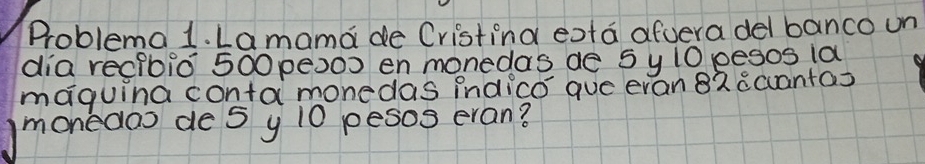 Problema 1. La mamá de Cristina está afuera del banco un
día recibió 500 pesos en monedas de 5 y 10 pesos la
máquina conta monedas indicó que eran 82 ¿cuantas
monedas de 5 y 10 pesos eran?